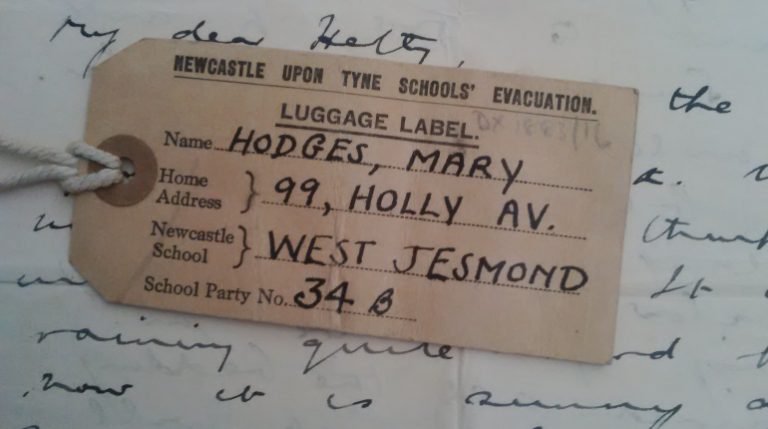 My dear Hetty,
the
NEWCASTLE UPON TYNE SCHOOLS' EVACUATION.
LUGGAGE LABEL.
Name HODGES, MARY
Home Address } 99, HOLLY AV.
Newcastle School } WEST JESMOND
School Party No. 34 B
It
raining quite
now it is sunny